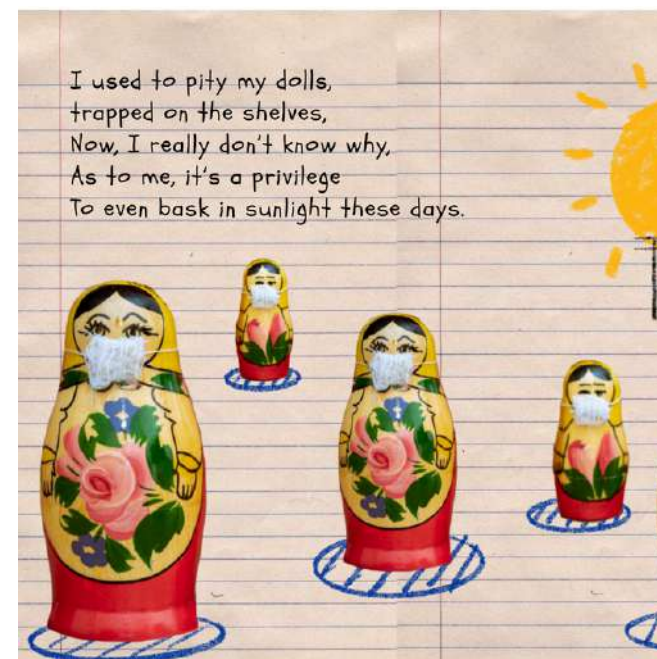 I used to pity my dolls,
trapped on the shelves,
Now, I really don't know why,
As to me, it's a privilege
To even bask in sunlight these days.